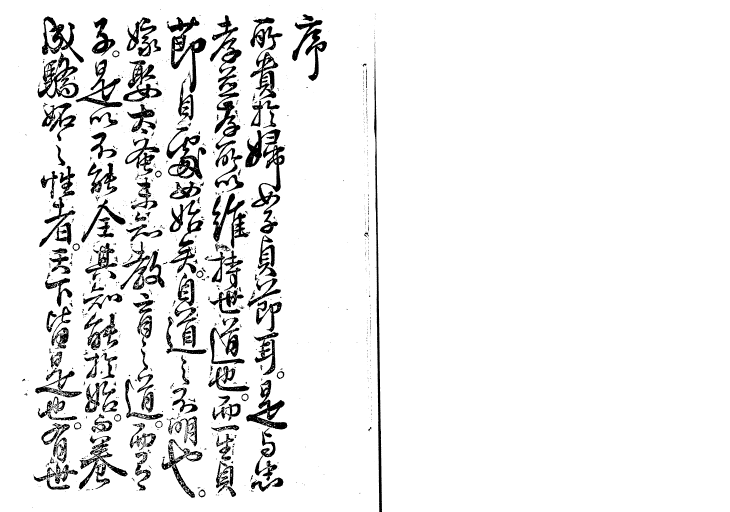 序
所貴於婦女子貞節耳。是与忠
孝並存所以維持世道也。而一生貞
節自處女始矣。自道之不明也。
嫁娶太蚤。未知教育之道。而有
子。是以不能全其知能於始。而養
成驕妬之性者。天下皆是也。有世